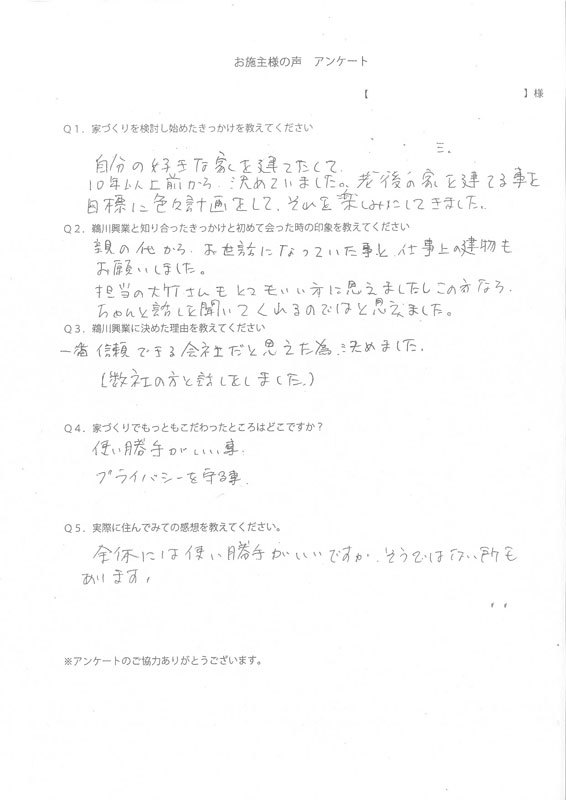 お施主様の声 アンケート
【 】様
Q1．家づくりを検討し始めたきっかけを教えてください
三.
自分の好きな家を建てたくて、
10年以上前から、決めていました。老後の家を建てる事を
目標に色々計画をして、それを楽しみにしてきました。
Q2．鵜川興業と知り合ったきっかけと初めて会った時の印象を教えてください
親の代から、お世話になっていた事と、仕事上の建物も
お願いしました。
担当の大竹さんもとてもいい方に思えましたしこの方なら、
ちゃんと話しを聞いてくれるのではと思えました。
Q3．鵜川興業に決めた理由を教えてください
一番信頼できる会社だと思えた為、決めました。
(数社の方と話しをしました。)
Q4．家づくりでもっともこだわったところはどこですか？
使い勝手がいい事。
プライバシーを守る事。
Q5．実際に住んでみての感想を教えてください。
全体には使い勝手がいいですが、そうではない所も
あります。
※アンケートのご協力ありがとうございます。